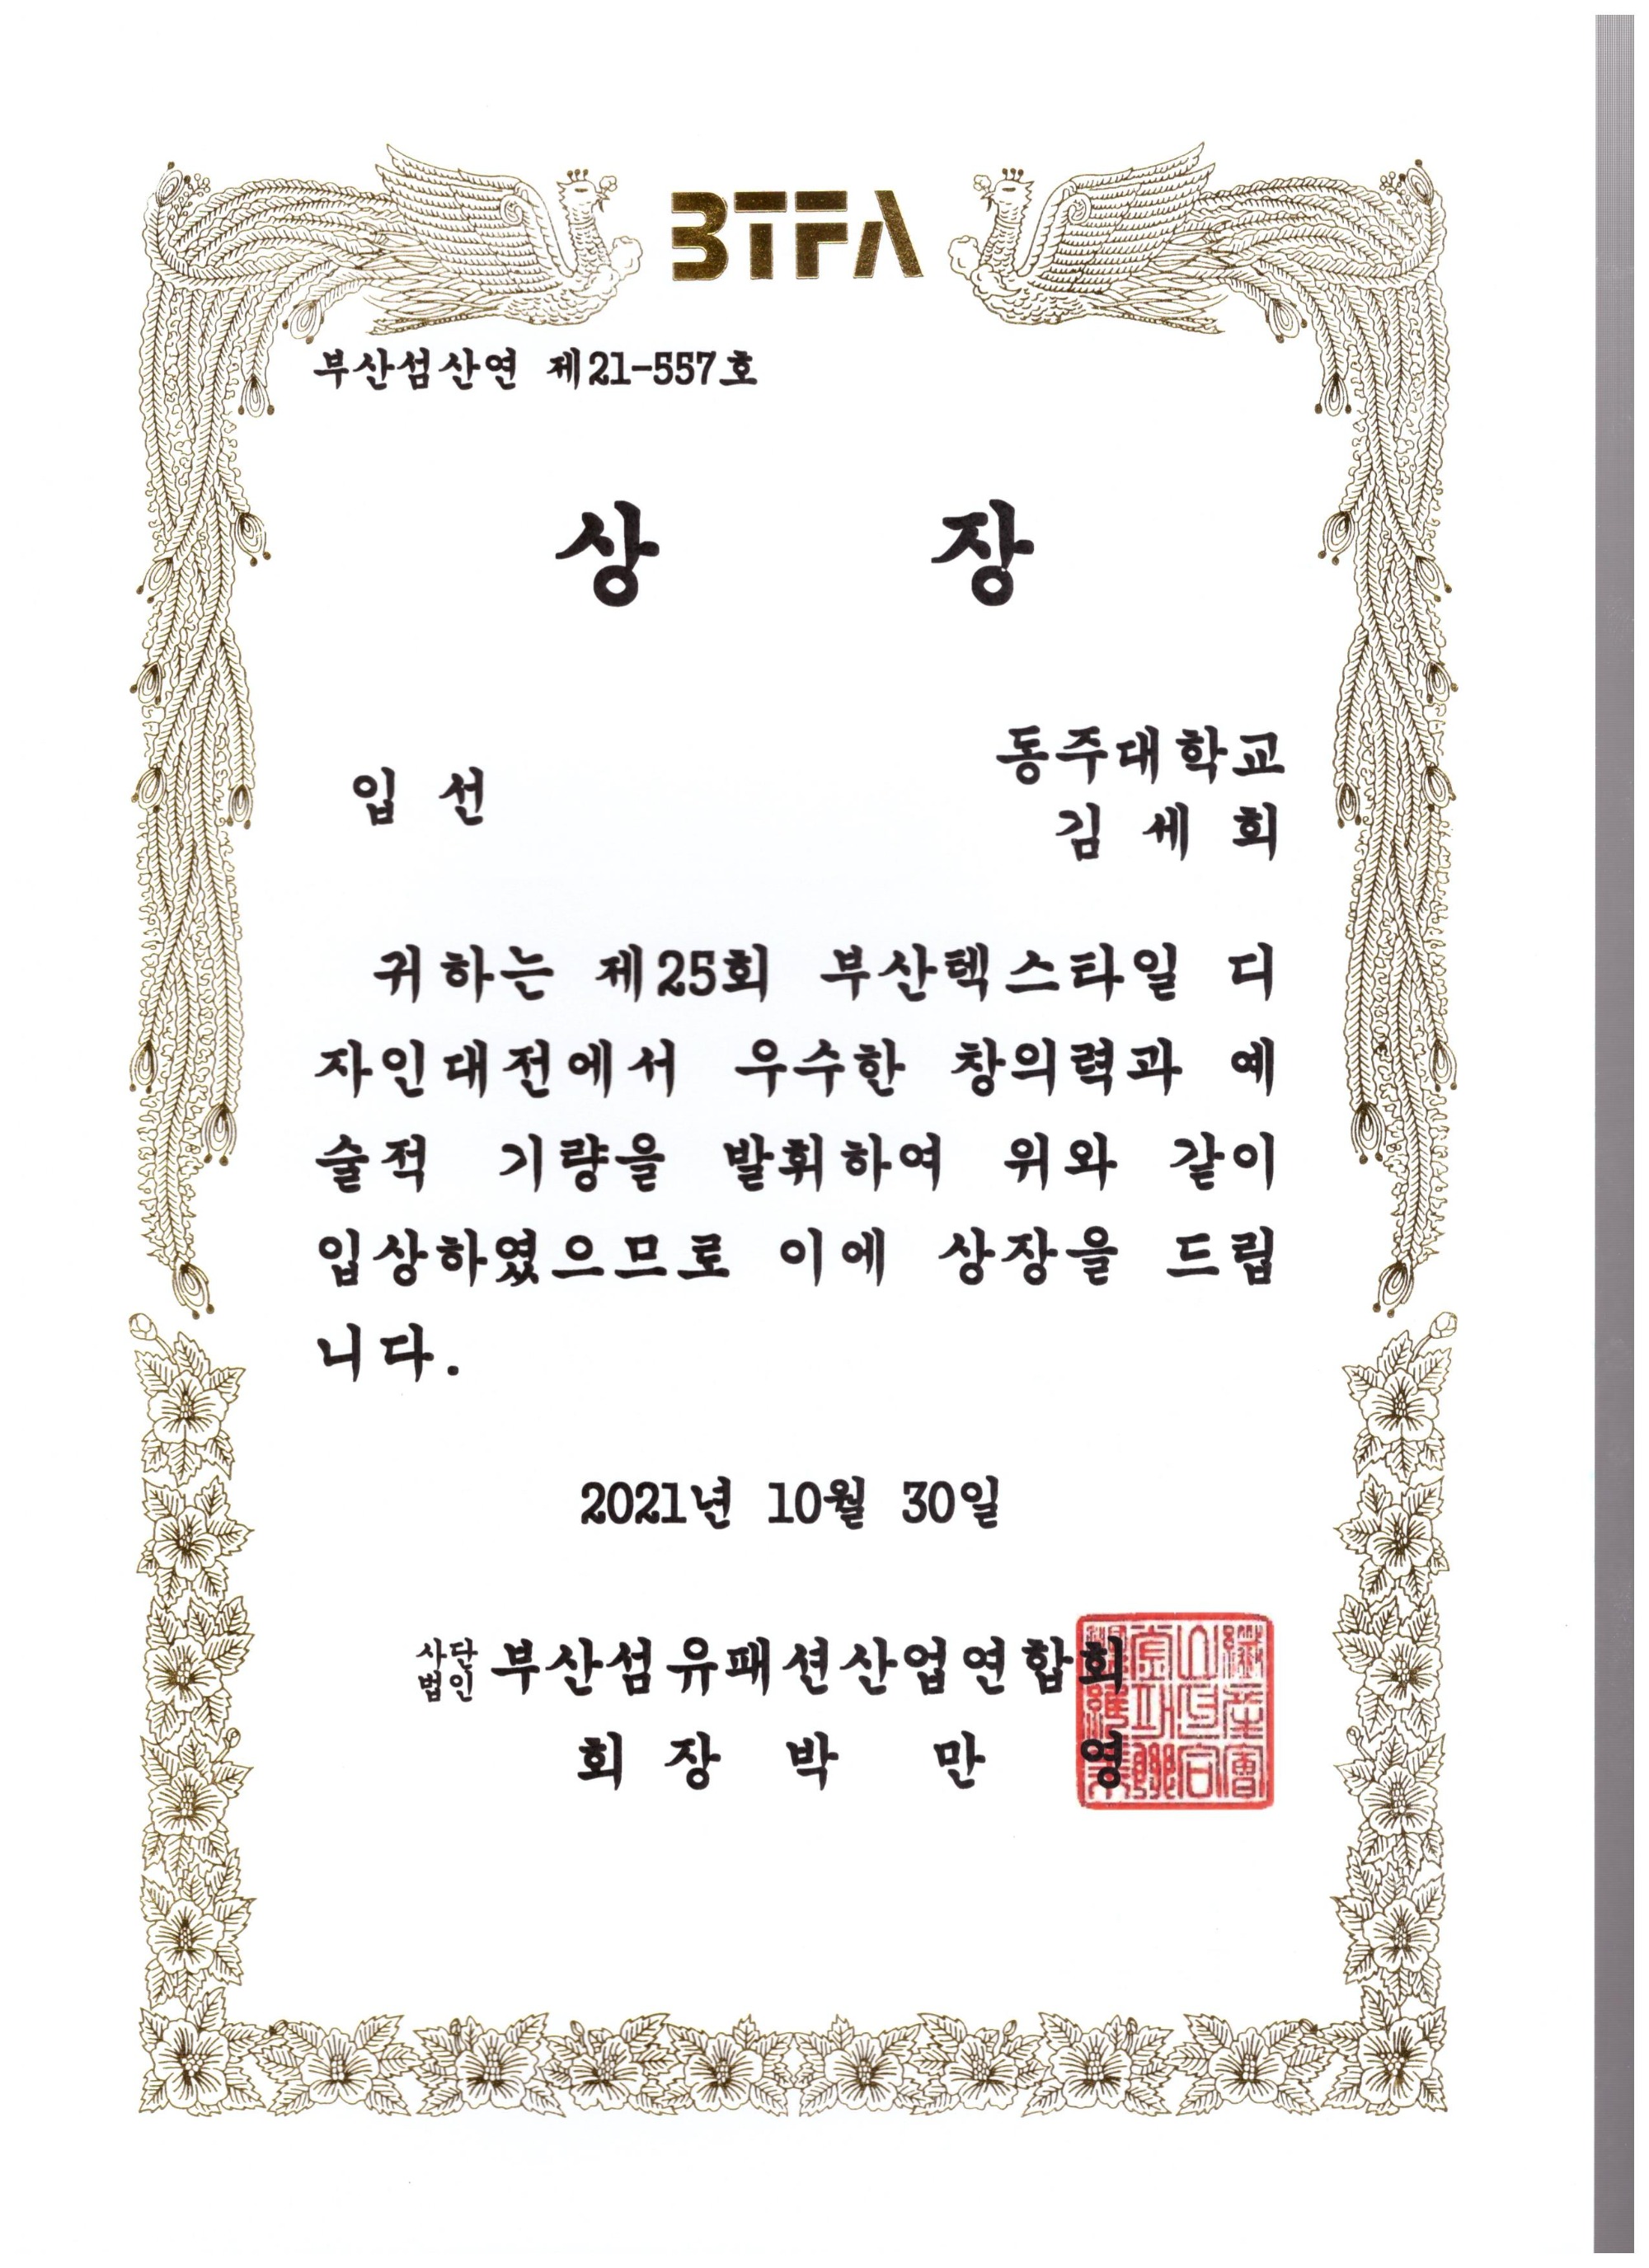 BTFA
부산섬산연 제21-557호
상 장
동주대학교
입 선
김 세 희
귀하는 제25회 부산텍스타일 디
자인대전에서 우수한 창의력과 예
술적 기량을 발휘하여 위와 같이
입상하였으므로 이에 상장을 드립
니다.
2021년 10월 30일
사단법인 부산섬유패션산업연합회
회 장 박 만 영